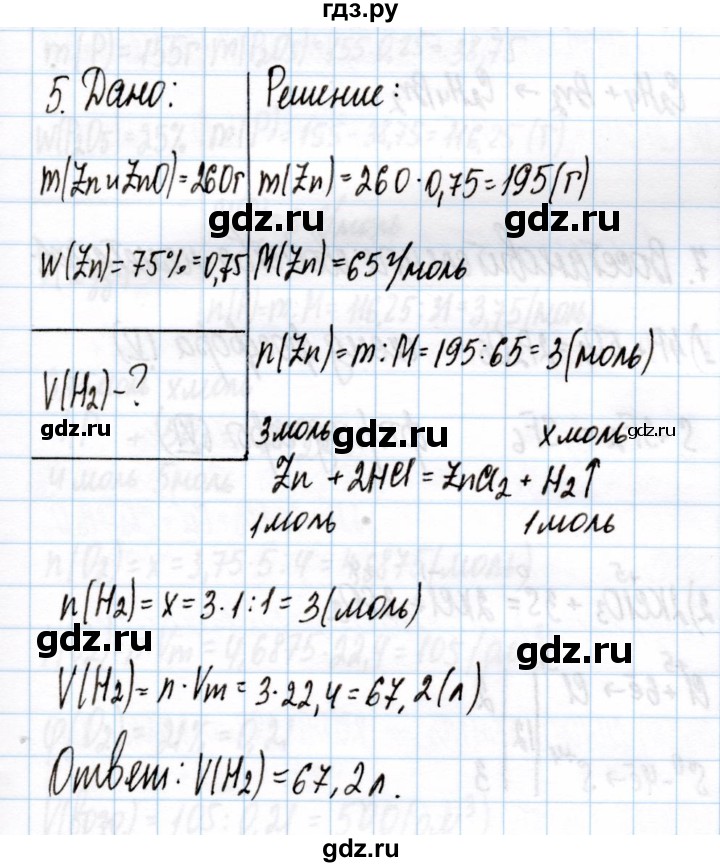 гдз.ру
5. Дано:
m(Zn и ZnO)=260г
w(Zn)=75%=0,75
V(H2)-?
Решение:
m(Zn)=260·0,75=195(г)
gdz.ru
gdz.ru
M(Zn)=65г/моль
n(Zn)=m:M=195:65=3(моль)
gdz.ru
3моль
gdz.ru
xмоль
gdz.ru
Zn + 2HCl = ZnCl2 + H2↑
1моль
1моль
n(H2)=x=3·1:1=3(моль)
gdz.ru
gdz.ru
V(H2)=n·Vm=3·22,4=67,2(л)
Ответ: V(H2)=67,2л.
gdz.ru
gdz.ru